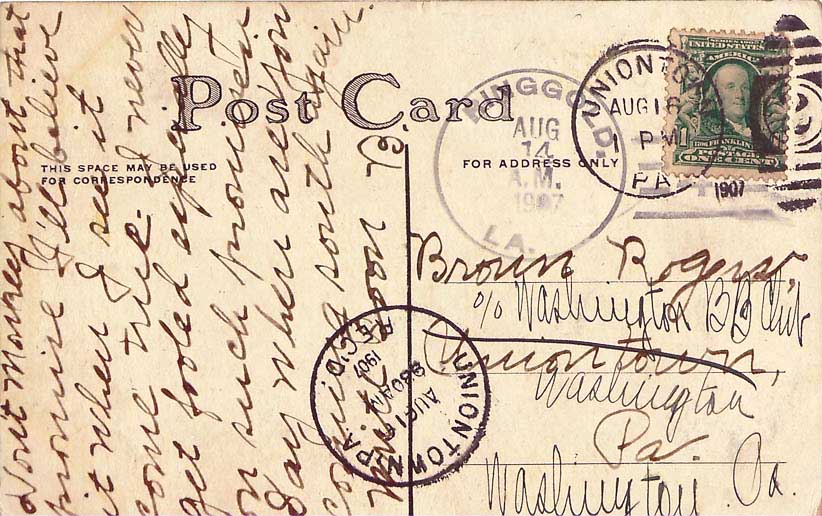 Post Card
THIS SPACE MAY BE USED
FOR CORRESPONDENCE
FOR ADDRESS ONLY
RINGGOLD,
AUG
14
A.M.
1907
LA.
UNIONTOWN
AUG 16
PM
PA
1907
SERIES 1902
UNITED STATES
AMERICA
FRANKLIN
ONE CENT
Brown Rogers,
c/o Washington BB Club
Uniontown,
Washington
Pa.
Washington Pa.
UNIONTOWN, PA.
AUG 16
930AM
1907
REC'D
Don't about that
promise I'll believe
it when I see it
come true. I never
get fooled especially
on such promises
Say where are you
coming south again.
Write soon B.